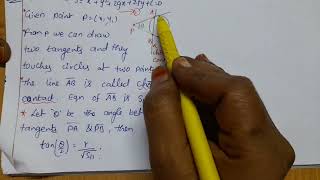 x²+y²+2gx+2fy+c=0
* Given point P=(x₁,y₁)
From P we can draw
two tangents and they
touches circle at two points
* The line AB is called
contact. Eqn of AB is S₁
* Let 'θ' be the angle between
tangents PA & PB, then
tan(θ/2) = r/√S₁₁ ;